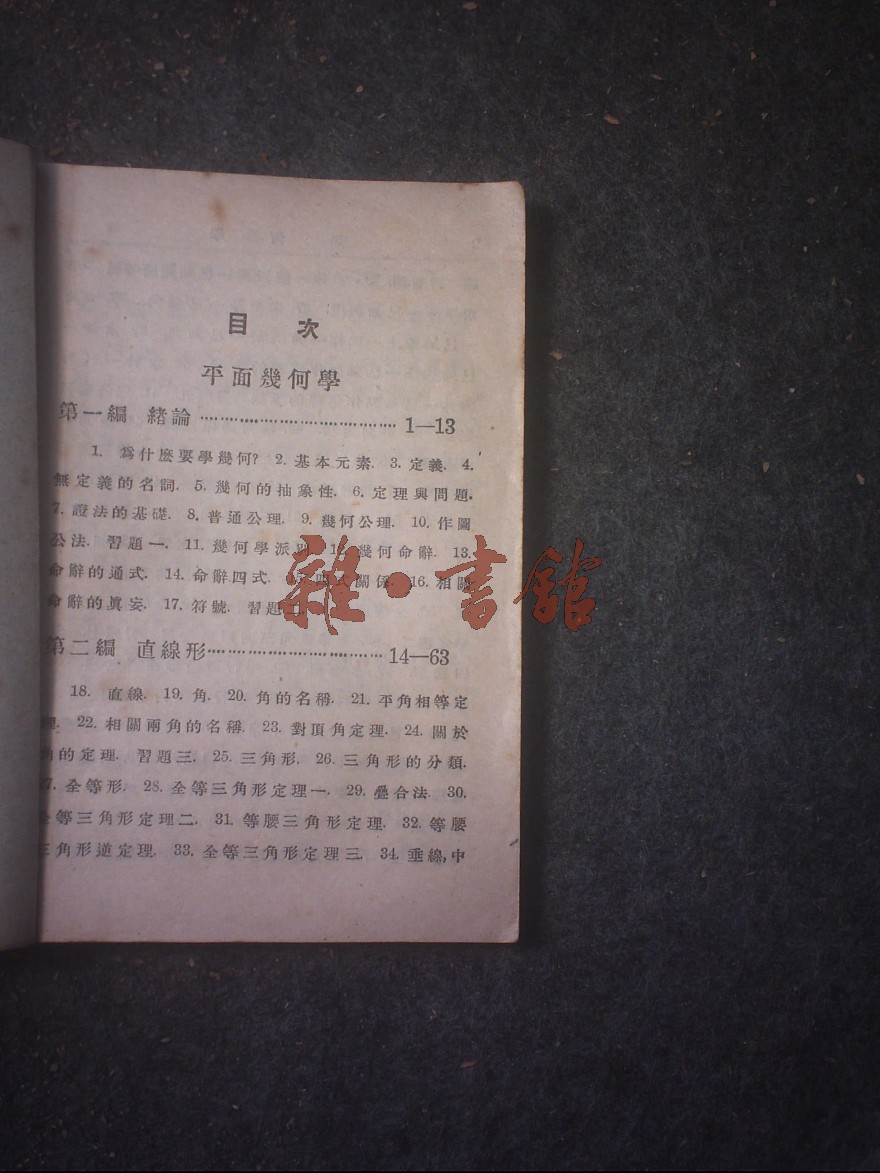 目 次
平面幾何學
第一編 緒論 1—13
1. 爲什麼要學幾何? 2. 基本元素. 3. 定義. 4.
無定義的名詞. 5. 幾何的抽象性. 6. 定理與問題.
7. 證法的基礎. 8. 普通公理. 9. 幾何公理. 10. 作圖
公法. 習題一. 11. 幾何學派別. 12. 幾何命辭. 13.
命辭的通式. 14. 命辭四式. 15. 四式關係. 16. 相關
命辭的眞妄. 17. 符號. 習題二.
雜·書館
第二編 直線形 14—63
18. 直線. 19. 角. 20. 角的名稱. 21. 平角相等定
理. 22. 相關兩角的名稱. 23. 對頂角定理. 24. 關於
角的定理. 習題三. 25. 三角形. 26. 三角形的分類.
27. 全等形. 28. 全等三角形定理一. 29. 疊合法. 30.
全等三角形定理二. 31. 等腰三角形定理. 32. 等腰
三角形逆定理. 33. 全等三角形定理三. 34. 垂線,中